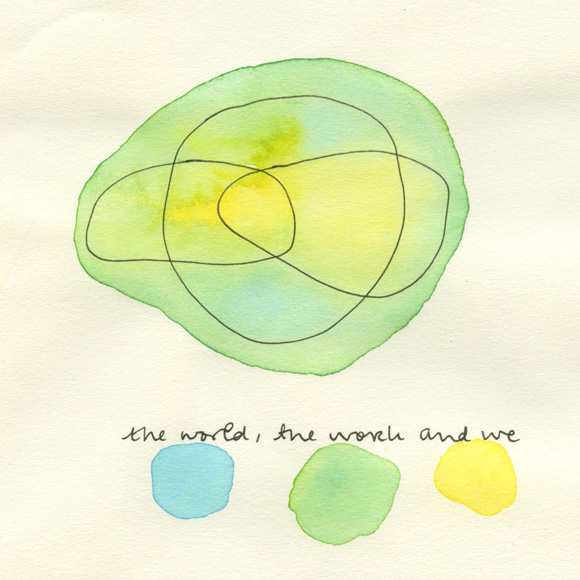 the world, the work and we